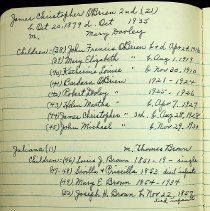 James Christopher O'Brien 2nd (21)
b. Oct 20, 1879 d. Oct 1935
m. Mary Dooley
Children:-(38) John Francis O'Brien b+d Apr 24, 1916
(39) Mary Elizabeth " b. Aug 1, 1919
(40) Katherine Louise " b. Nov 20, 1920
(41) Barbara O'Brien 1921 - 1924
(42) Robert Dooley " 1925 - 1926
(43) Helen Martha " b. Apr 7, 1927
(44) James Christopher " 3rd b. Aug 28, 1928
(45) John Michael " b. Nov 29, 1930
Juliana (11) m. Thomas Brown
Children:-(46) Louis J. Brown 1851-19 - single
47-48 & Priscilla 1853 died infants
(49) Mary E. Brown 1854 - 1934
(50) Joseph H. Brown b Nov 22, 1857
died infants